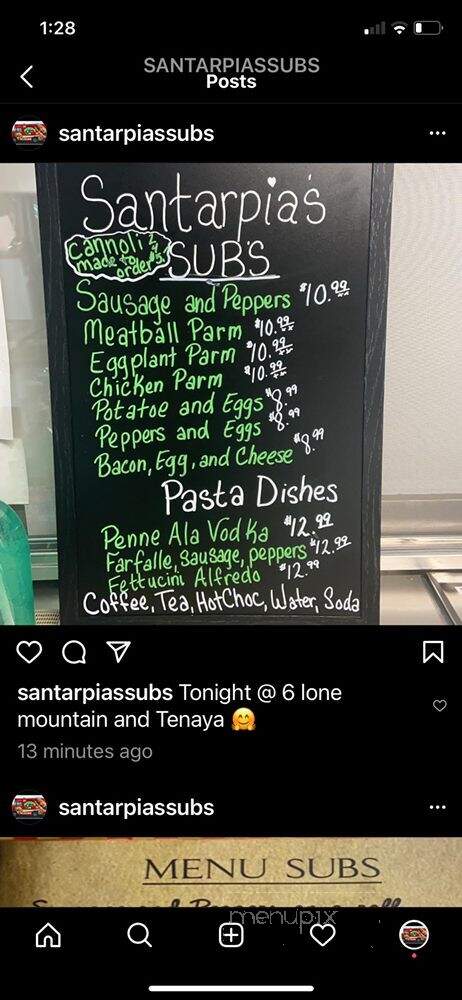 1:28
SANTARPIASSUBS
Posts
santarpiassubs
Santarpia's
Cannoli
made to
order
SUBS
Sausage and Peppers $10.99
Meatball Parm $10.99
Eggplant Parm $10.99
Chicken Parm $10.99
Potatoe and Eggs $8.99
Peppers and Eggs $8.99
Bacon, Egg, and Cheese $8.99
Pasta Dishes
Penne Ala Vodka $12.99
Farfalle, Sausage, peppers $12.99
Fettucini Alfredo $12.99
Coffee, Tea, HotChoc, Water, Soda
santarpiassubs Tonight @ 6 lone
mountain and Tenaya 🤗
13 minutes ago
santarpiassubs
MENU SUBS
menupix